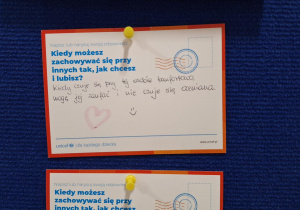 Kiedy możesz
zachowywać się przy
innych tak, jak chcesz
i lubisz?
Kiedy czuje się przy tej osobie komfortowo
mogę jej zaufać i nie czuje się oceniana
unicef dla każdego dziecka
Kiedy możesz
zachowywać się przy
innych tak, jak chcesz